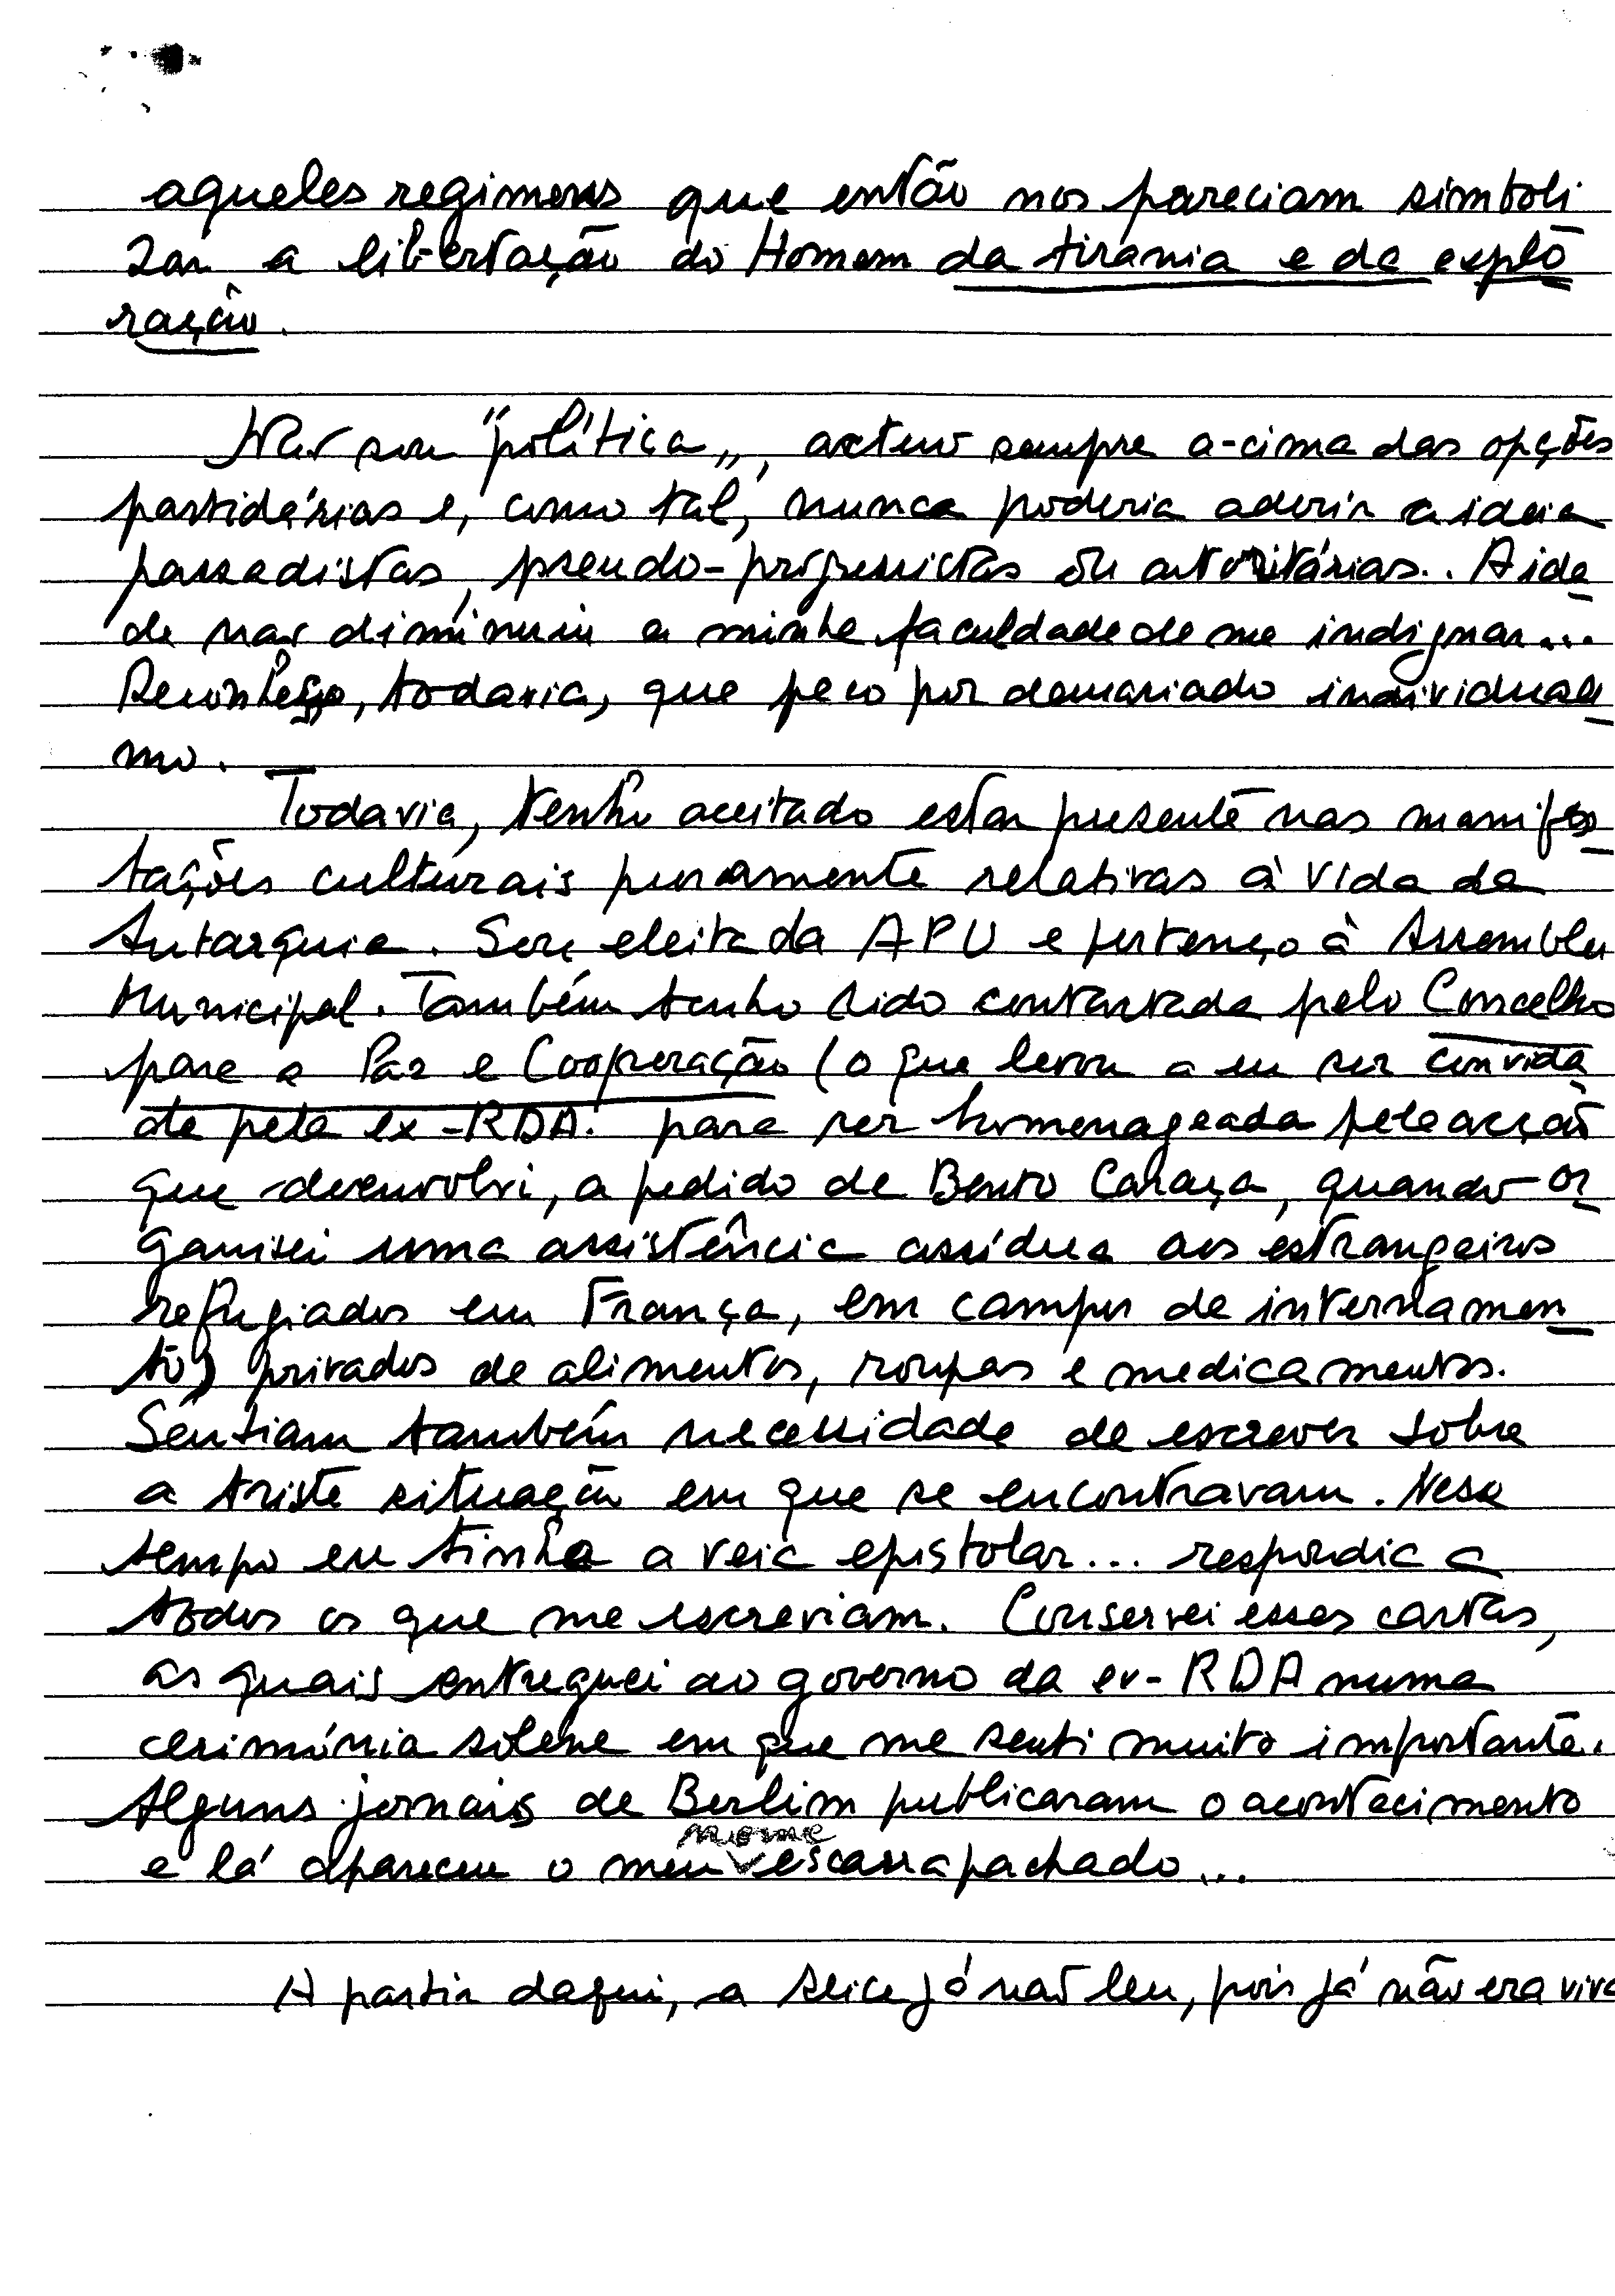 aqueles regimens que então nos pareciam simboli
zar a libertação do Homem da tirania e da explo
ração.
Não sou "política", actuo sempre a-cima das opções
partidárias e, como tal, nunca poderia aderir a ideia
passadistas, pseudo-progressistas ou autoritárias.. A ida
de não diminuiu a minha faculdade de me indignar...
Reconheço, todavia, que peco por demasiado individualis
mo.
Todavia, tenho aceitado estar presente nas manifes
tações culturais puramente relativas à vida da
Autarquia. Sou eleita da APU e pertenço à Assembleia
Municipal. Também tenho sido contactada pelo Concelho
para a Paz e Cooperação (o que levou a eu ser convida
da pela ex-RDA. para ser homenageada pela acção
que desenvolvi, a pedido de Bento Caraça, quando or
ganisei uma assistência assídua aos estrangeiros
refugiados em França, em campos de internamen
to) privados de alimentos, roupas e medicamentos.
Sentiam também necessidade de escrever sobre
a triste situação em que se encontravam. Nesse
tempo eu tinha a veia epistolar... respondia a
todos os que me escreviam. Conservei essas cartas,
as quais entreguei ao governo da ex-RDA numa
cerimónia solene em que me senti muito importante.
Alguns jornais de Berlim publicaram o acontecimento
e lá apareceu o meu nome escarrapachado...
A partir daqui, a Alice já não leu, pois já não era viva